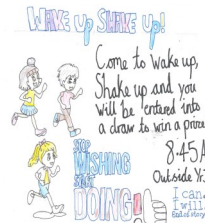 WAKE up SHAKE up!
Come to wake up,
Shake up and you
will be entered into
a draw to win a prize
8:45A
Outside Yr
STOP
WISHING
START
DOING
I can,
I will.
End of story